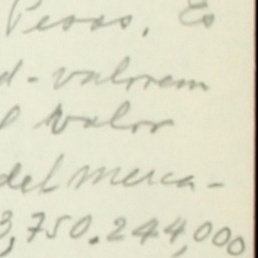 Pesos. Es
d-valorem
l valor
del merca-
3,750.244,000